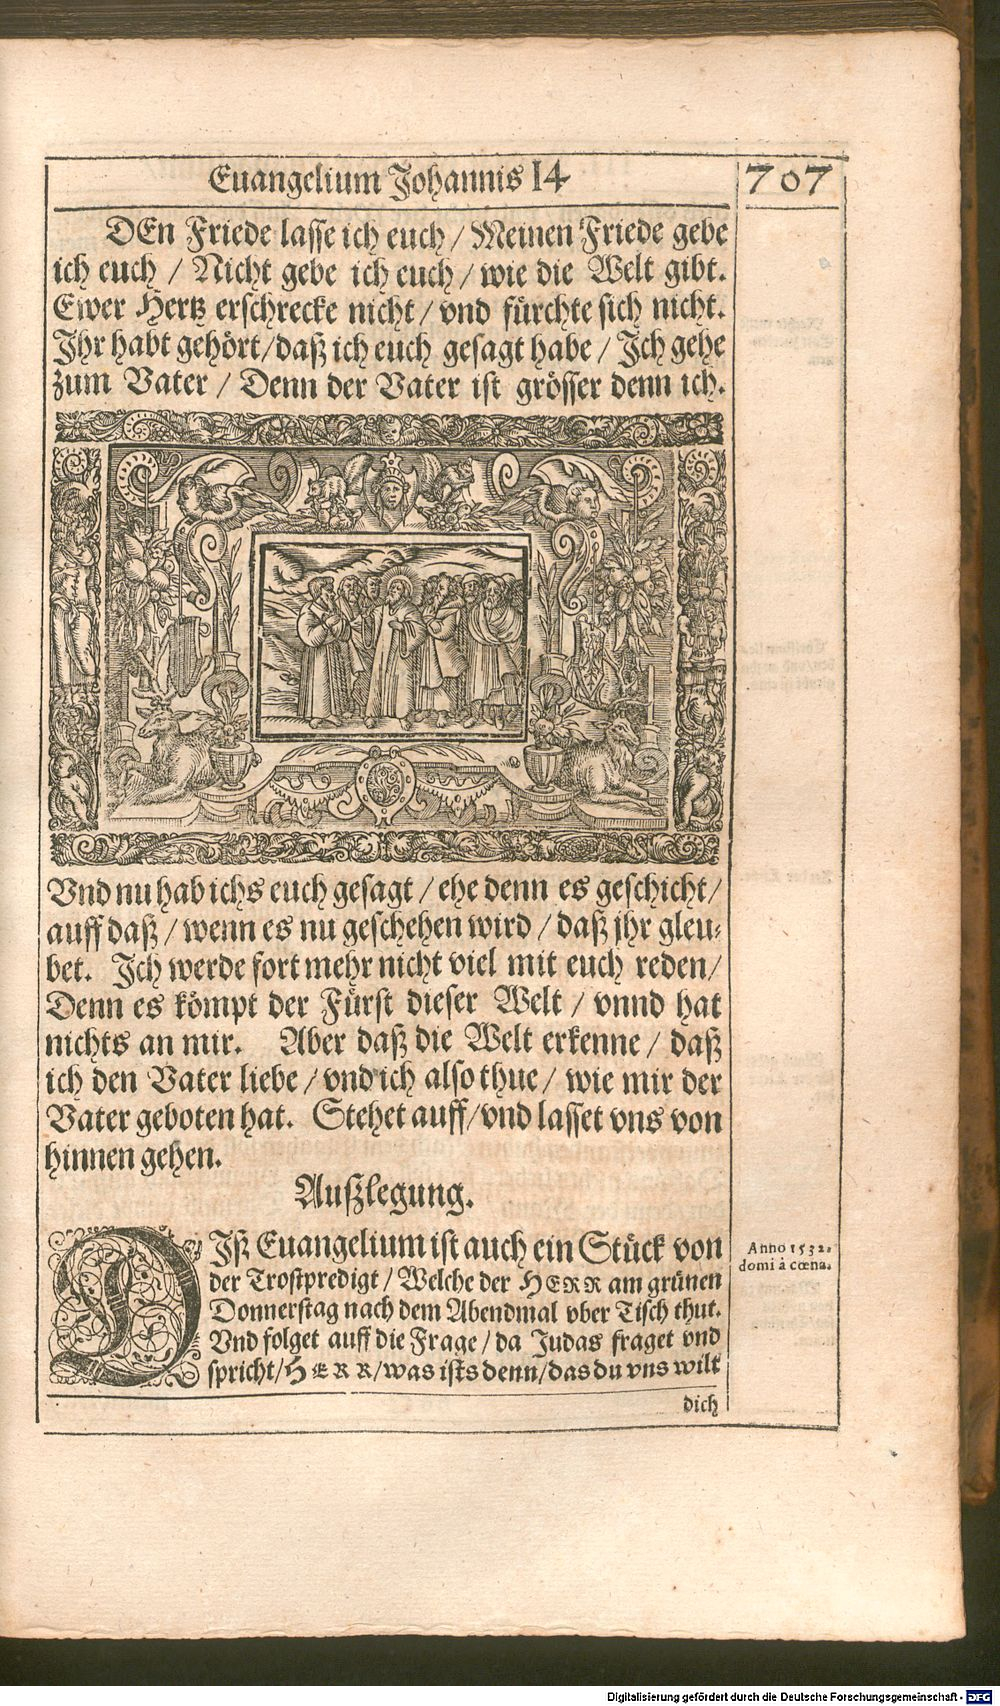 Euangelium Johannis 14
707
DEn Friede lasse ich euch / Meinen Friede gebe
ich euch / Nicht gebe ich euch / wie die Welt gibt.
Ewer Hertz erschrecke nicht / vnd fürchte sich nicht.
Ihr habt gehört/daß ich euch gesagt habe / Ich gehe
zum Vater / Denn der Vater ist grösser denn ich.
Vnd nu hab ichs euch gesagt / ehe denn es geschicht/
auff daß / wenn es nu geschehen wird / daß jhr gleu-
bet. Ich werde fort mehr nicht viel mit euch reden/
Denn es kömpt der Fürst dieser Welt / vnnd hat
nichts an mir. Aber daß die Welt erkenne / daß
ich den Vater liebe / vnd ich also thue / wie mir der
Vater geboten hat. Stehet auff/vnd lasset vns von
hinnen gehen.
Außlegung.
DIß Euangelium ist auch ein Stück von
der Trostpredigt / Welche der HERR am grünen
Donnerstag nach dem Abendmal vber Tisch thut.
Vnd folget auff die Frage / da Judas fraget vnd
spricht/HERR/was ists denn/das du vns wilt
dich
Anno 1532.
domi à cœna.
Digitalisierung gefördert durch die Deutsche Forschungsgemeinschaft - DFG